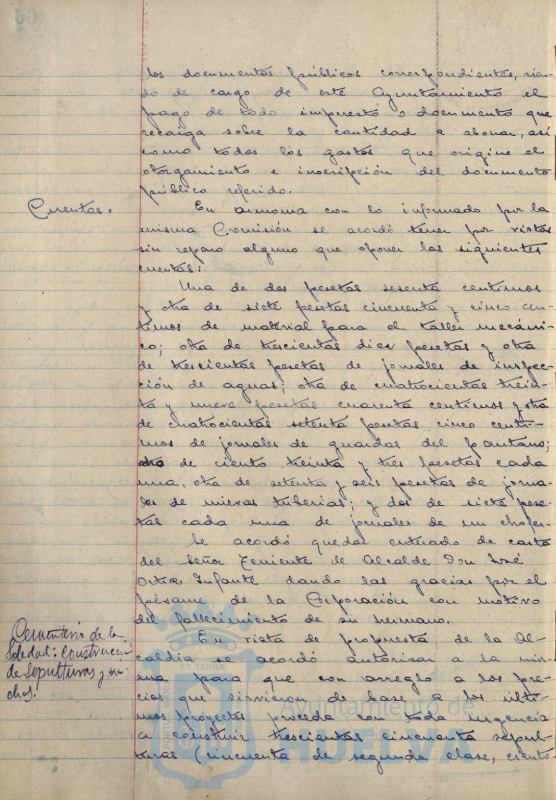 los documentos públicos correspondientes, sien-
do de cargo de este Ayuntamiento el
pago de todo impuesto o documento que
recaiga sobre la cantidad a abonar, así
como todos los gastos que origine el
otorgamiento e inscripción del documento
público referido.
Cuentas.
En armonía con lo informado por la
misma Comisión se acordó tener por vistas
sin reparo alguno que oponer las siguientes
cuentas:
Una de dos pesetas sesenta centimos
y otra de siete pesetas cincuenta y cinco cen-
timos de material para el taller mecáni-
co; otra de trescientas diez pesetas y otra
de trescientas pesetas de jornales de inspec-
ción de aguas; otra de cuatrocientas trein-
ta y nueve pesetas cuarenta centimos y otra
de cuatrocientas setenta pesetas cinco centi-
mos de jornales de guardas del pantano;
dos de ciento treinta y tres pesetas cada
una, otra de setenta y seis pesetas de jorna-
les de nuevas tuberias; y dos de siete pese-
tas cada una de jornales de un chofer.
Se acordó quedar enterado de carta
del Señor Teniente de Alcalde Don José
Ortiz Infante dando las gracias por el
pésame de la Corporación con motivo
del fallecimiento de su hermano.
Cementerio de la
Soledad: Construcción
de Sepulturas y ni-
chos.
En vista de propuesta de la Al-
caldía se acordó autorizar a la mis-
ma para que con arreglo a los pre-
cios que sirvieron de base a los últi-
mos proyectos proceda con toda urgencia
a construir trescientas cincuenta sepul-
turas (cincuenta de segunda clase, ciento
Ayuntamiento de
HUELVA